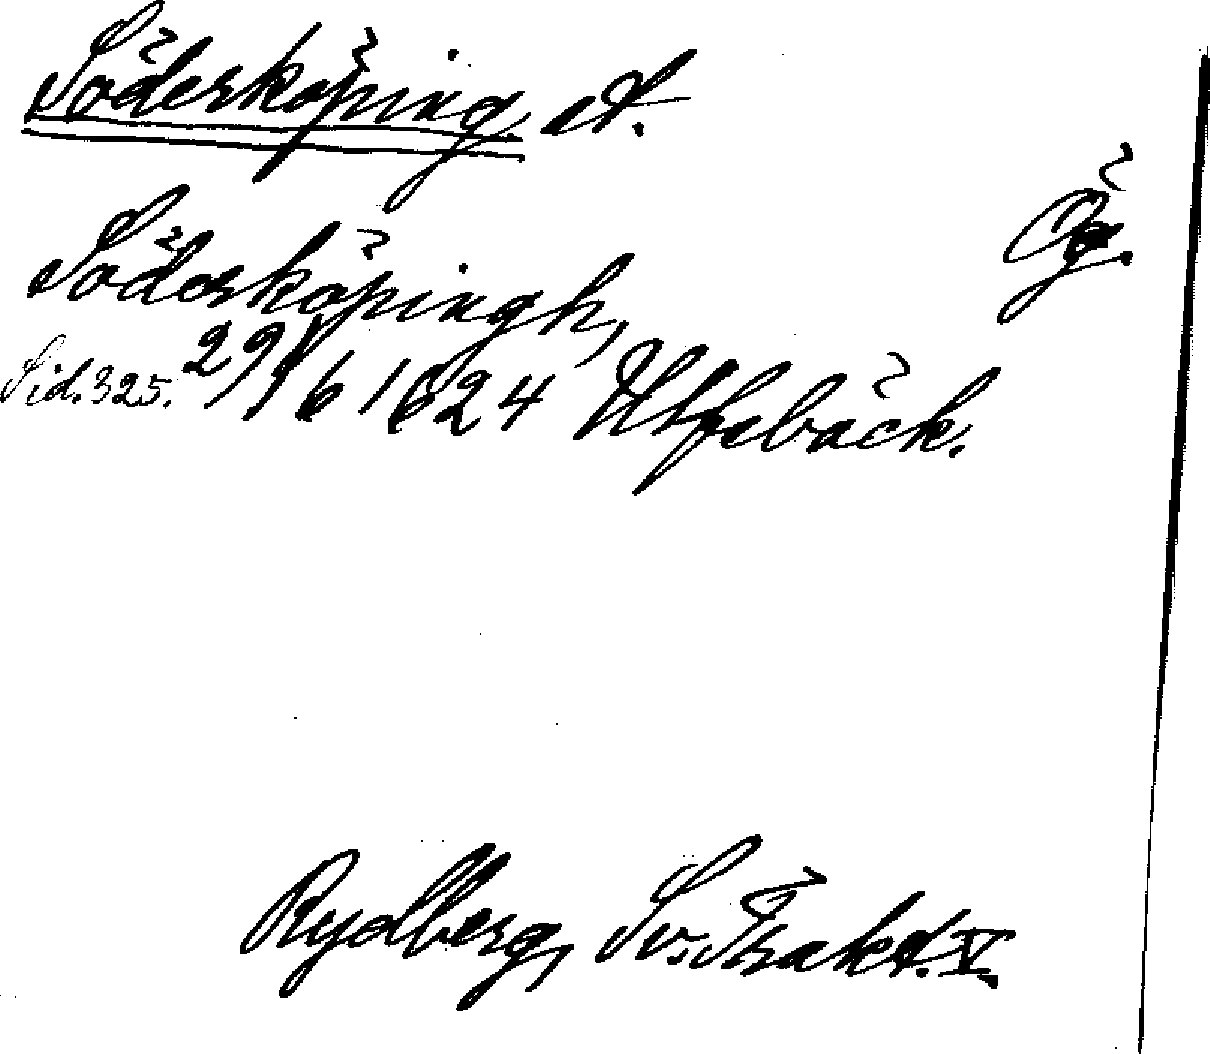 Söderköping st.
Ög.
Söderköpingh,
Sid. 325. 29/6 1624 Ulfsbäck.
Rydberg, Sv. Trakt. V.